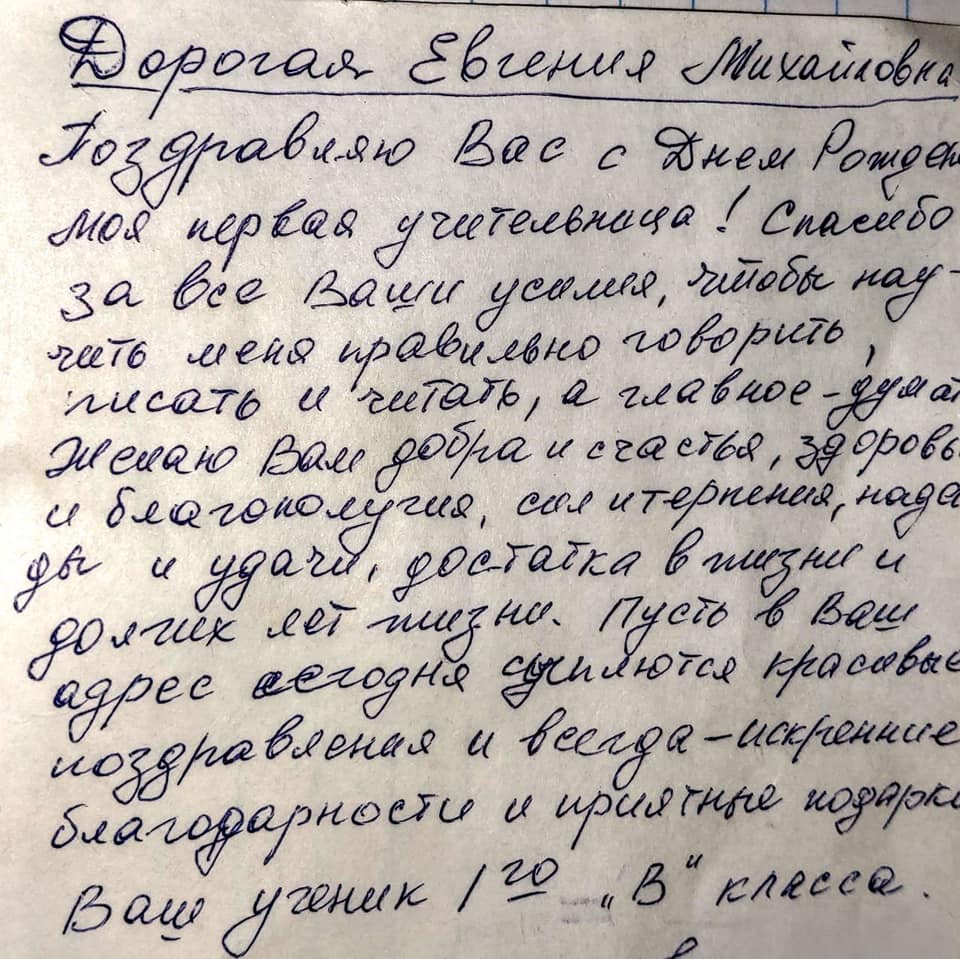 Дорогая Евгения Михайловна
Поздравляю Вас с Днем Рожден
моя первая учительница! Спасибо
за все Ваши усилия, чтобы нау-
чить меня правильно говорить,
писать и читать, а главное - думат
Желаю Вам добра и счастья, здоровь
и благополучия, сил и терпения, наде
ды и удачи, достатка в жизни и
долгих лет жизни. Пусть в Ваш
адрес сегодня сыплются красивые
поздравления и всегда - искренние
благодарности и приятные подарк
Ваш ученик 1го „В" класса.